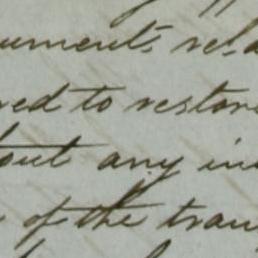 uments rela
ved to restor
out any in
of the tran